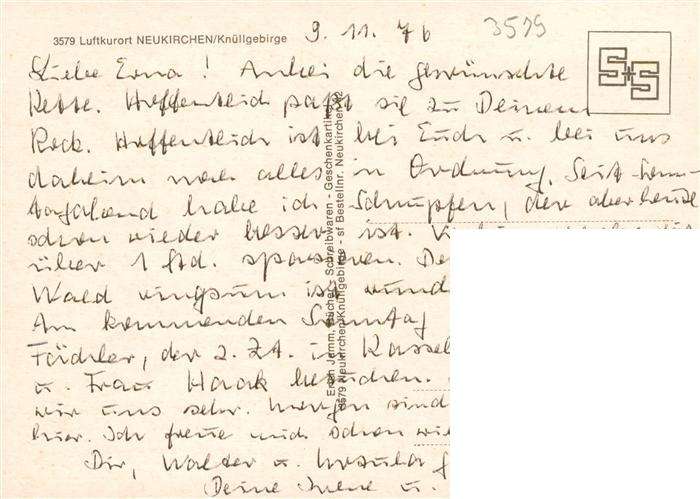 3579 Luftkurort NEUKIRCHEN/Knüllgebirge 9.11.76 3579
S+S
Liebe Erna! Anbei die gewünschte
Kette. Hoffentlich paßt sie zu Deinem
Rock. Hoffentlich ist bei Euch u. bei uns
daheim noch alles in Ordnung. Seit Sonn-
tagabend habe ich Schnupfen, der aber heute
schon wieder besser ist.
über 1 Std. spazieren.
Wald ringsum ist
Am kommenden Sonntag
der z. Zt. in Kassel
u. Frau Haack besuchen.
wir uns sehr. Morgen sind
hier. Ich freue mich schon
Dir, Walter u. Ursula
Deine Irene u.
Erich Jemm, Bücher - Schreibwaren - Geschenkartikel
3579 Neukirchen/Knüllgebirge - sf Bestellnr. Neukirchen